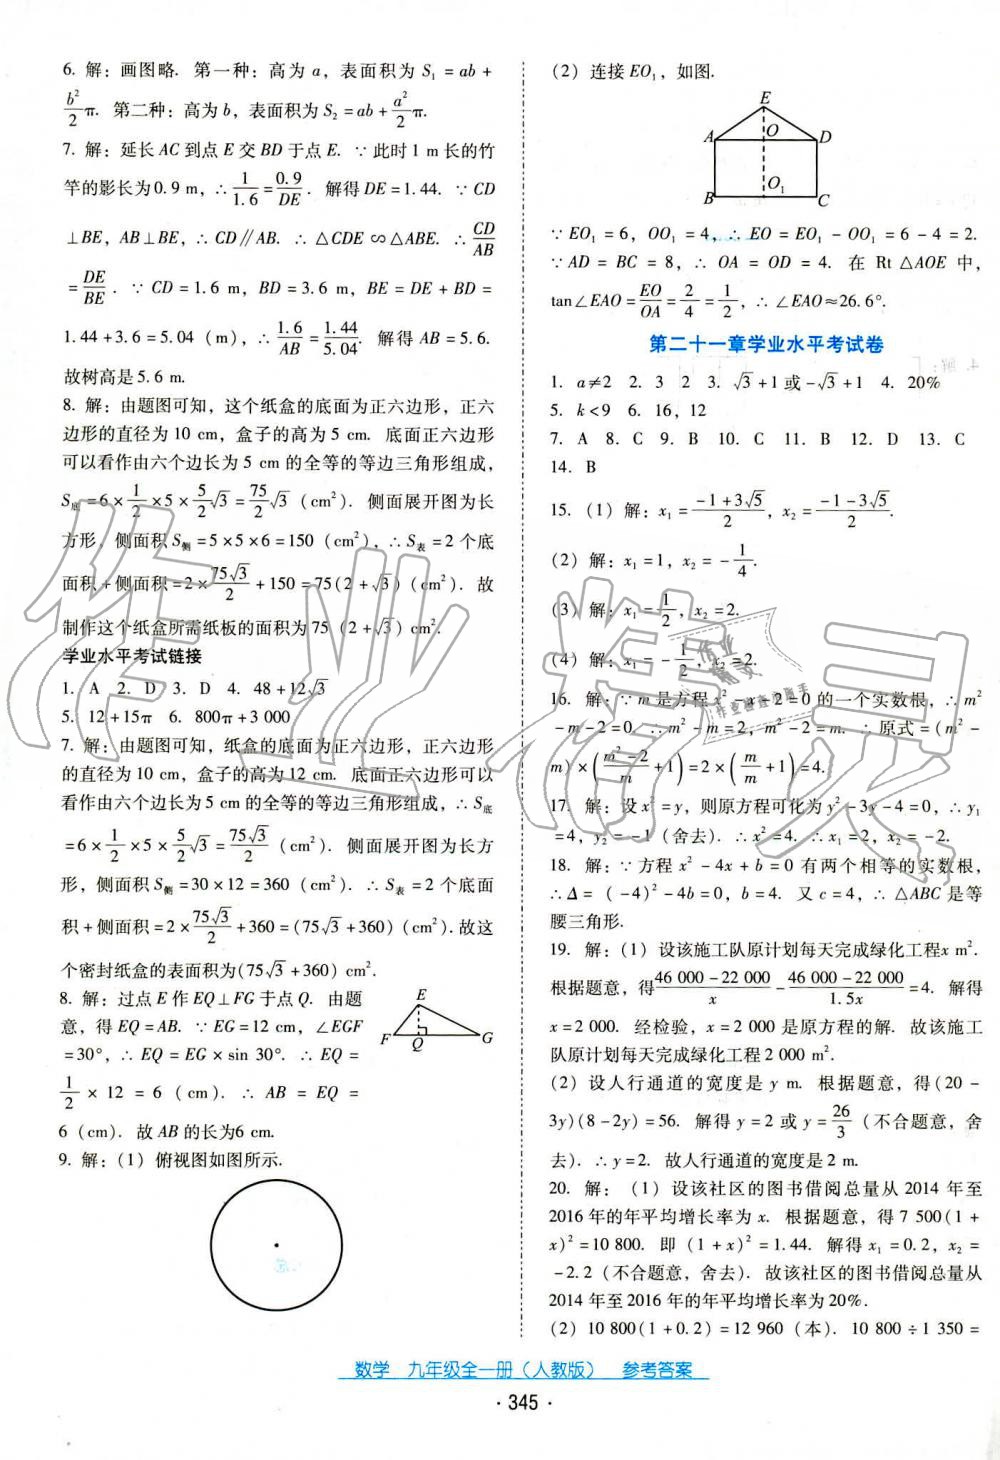 6. 解：画图略. 第一种：高为 a，表面积为 S₁ = ab +
b²/2 π. 第二种：高为 b，表面积为 S₂ = ab + a²/2 π.
7. 解：延长 AC 到点 E 交 BD 于点 E. ∵ 此时 1 m 长的竹
竿的影长为 0.9 m，∴ 1/1.6 = 0.9/DE. 解得 DE = 1.44. ∵ CD
⊥BE，AB⊥BE，∴ CD∥AB. ∴ △CDE ∽ △ABE. ∴ CD/AB
= DE/BE. ∵ CD = 1.6 m，BD = 3.6 m，BE = DE + BD =
1.44 + 3.6 = 5.04 (m)，∴ 1.6/AB = 1.44/5.04. 解得 AB = 5.6.
故树高是 5.6 m.
8. 解：由题图可知，这个纸盒的底面为正六边形，正六
边形的直径为 10 cm，盒子的高为 5 cm. 底面正六边形
可以看作由六个边长为 5 cm 的全等的等边三角形组成，
S底 = 6 × 1/2 × 5 × 5/2 √3 = 75/2 √3 (cm²). 侧面展开图为长
方形，侧面积 S侧 = 5 × 5 × 6 = 150 (cm²)，∴ S表 = 2 个底
面积 + 侧面积 = 2 × 75√3/2 + 150 = 75(2 + √3)(cm²). 故
制作这个纸盒所需纸板的面积为 75 (2 + √3) cm².
学业水平考试链接
1. A 2. D 3. D 4. 48 + 12√3
5. 12 + 15π 6. 800π + 3 000
7. 解：由题图可知，纸盒的底面为正六边形，正六边形
的直径为 10 cm，盒子的高为 12 cm. 底面正六边形可以
看作由六个边长为 5 cm 的全等的等边三角形组成，∴ S底
= 6 × 1/2 × 5 × 5/2 √3 = 75√3/2 (cm²). 侧面展开图为长方
形，侧面积 S侧 = 30 × 12 = 360 (cm²). ∴ S表 = 2 个底面
积 + 侧面积 = 2 × 75√3/2 + 360 = (75√3 + 360)(cm²). 故这
个密封纸盒的表面积为 (75√3 + 360) cm².
8. 解：过点 E 作 EQ⊥FG 于点 Q. 由题
意，得 EQ = AB. ∵ EG = 12 cm，∠EGF
= 30°，∴ EQ = EG × sin 30°. ∴ EQ =
1/2 × 12 = 6 (cm). ∴ AB = EQ =
6 (cm). 故 AB 的长为 6 cm.
E
F Q G
9. 解：(1) 俯视图如图所示.
(2) 连接 EO₁，如图.
E
A O D
B O₁ C
∵ EO₁ = 6，OO₁ = 4，∴ EO = EO₁ - OO₁ = 6 - 4 = 2.
∵ AD = BC = 8，∴ OA = OD = 4. 在 Rt △AOE 中，
tan∠EAO = EO/OA = 2/4 = 1/2，∴ ∠EAO≈26.6°.
第二十一章学业水平考试卷
1. a≠2 2. 3 2 3. √3 + 1 或 -√3 + 1 4. 20%
5. k < 9 6. 16，12
7. A 8. C 9. B 10. C 11. B 12. D 13. C
14. B
15. (1) 解：x₁ = (-1 + 3√5)/2，x₂ = (-1 - 3√5)/2.
(2) 解：x₁ = 1，x₂ = -1/4.
(3) 解：x₁ = 1/2，x₂ = 2.
(4) 解：x₁ = -1/2，x₂ = 2.
16. 解：∵ m 是方程 x² - x - 2 = 0 的一个实数根，∴ m²
- m - 2 = 0. ∴ m² - m = 2，m² - 2 = m. ∴ 原式 = (m² -
m) × ((m² - 2)/m + 1) = 2 × (m/m + 1) = 4.
17. 解：设 x² = y，则原方程可化为 y² - 3y - 4 = 0，∴ y₁
= 4，y₂ = -1 (舍去). ∴ x² = 4. ∴ x₁ = 2，x₂ = -2.
18. 解：∵ 方程 x² - 4x + b = 0 有两个相等的实数根，
∴ Δ = (-4)² - 4b = 0，b = 4. 又 c = 4，∴ △ABC 是等
腰三角形.
19. 解：(1) 设该施工队原计划每天完成绿化工程 x m².
根据题意，得 (46 000 - 22 000)/x - (46 000 - 22 000)/1.5x = 4. 解得
x = 2 000. 经检验，x = 2 000 是原方程的解. 故该施工
队原计划每天完成绿化工程 2 000 m².
(2) 设人行通道的宽度是 y m. 根据题意，得 (20 -
3y)(8 - 2y) = 56. 解得 y = 2 或 y = 26/3 (不合题意，舍
去). ∴ y = 2. 故人行通道的宽度是 2 m.
20. 解：(1) 设该社区的图书借阅总量从 2014 年至
2016 年的年平均增长率为 x. 根据题意，得 7 500(1 +
x)² = 10 800. 即 (1 + x)² = 1.44. 解得 x₁ = 0.2，x₂ =
-2.2 (不合题意，舍去). 故该社区的图书借阅总量从
2014 年至 2016 年的年平均增长率为 20%.
(2) 10 800(1 + 0.2) = 12 960 (本). 10 800 ÷ 1 350 =
数学 九年级全一册（人教版） 参考答案
· 345 ·
作业精灵